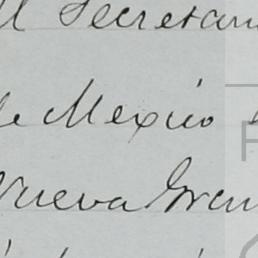 Secretari
de Mexico
Nueva Gran